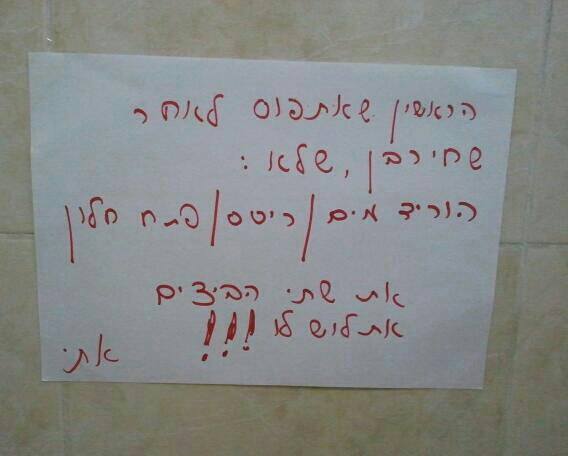 הראשון שאתפוס לאחר
שחירבן, שלא :
הוריד מים/ריסס/פתח חלון
את שתי הביצים
אתלוש לו !!!
אתי